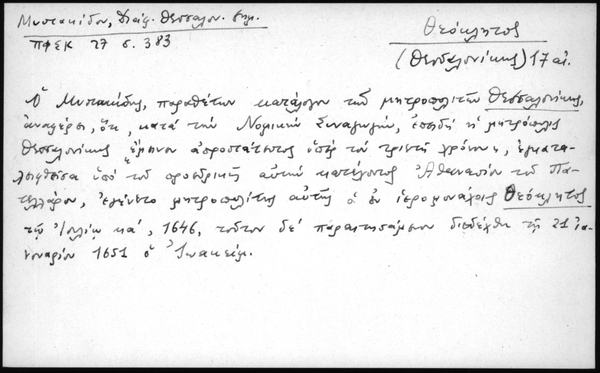 Μυστακίδου, Διάφ. Θεσσαλον. σημ.
ΠΦΣΚ 27 σ. 383
Θεόκλητος
(Θεσσαλονίκης) 17 αἰ.
Ὁ Μυστακίδης, παραθέτων κατάλογον τῶν μητροπολιτῶν Θεσσαλονίκης,
ἀναφέρει, ὅτι, κατὰ τὴν Νομικὴν Συναγωγήν, ἐπειδὴ ἡ μητρόπολις
Θεσσαλονίκης ἔμεινεν ἀπροστάτευτος ὑπὲρ τὸν τριετῆ χρόνον, ἐγκατα-
λειφθεῖσα ὑπὸ τοῦ προεδρικῶς αὐτὴν κατέχοντος Ἀθανασίου τοῦ Πα-
τελλάρου, ἐγένετο μητροπολίτης αὐτῆς ὁ ἐν ἱερομονάχοις Θεόκλητος
τῇ Ἰουλίου κα', 1646, τούτου δὲ παραιτησαμένου διεδέχθη τῇ 21 Ἰα-
νουαρίου 1651 ὁ Ἰωακείμ.